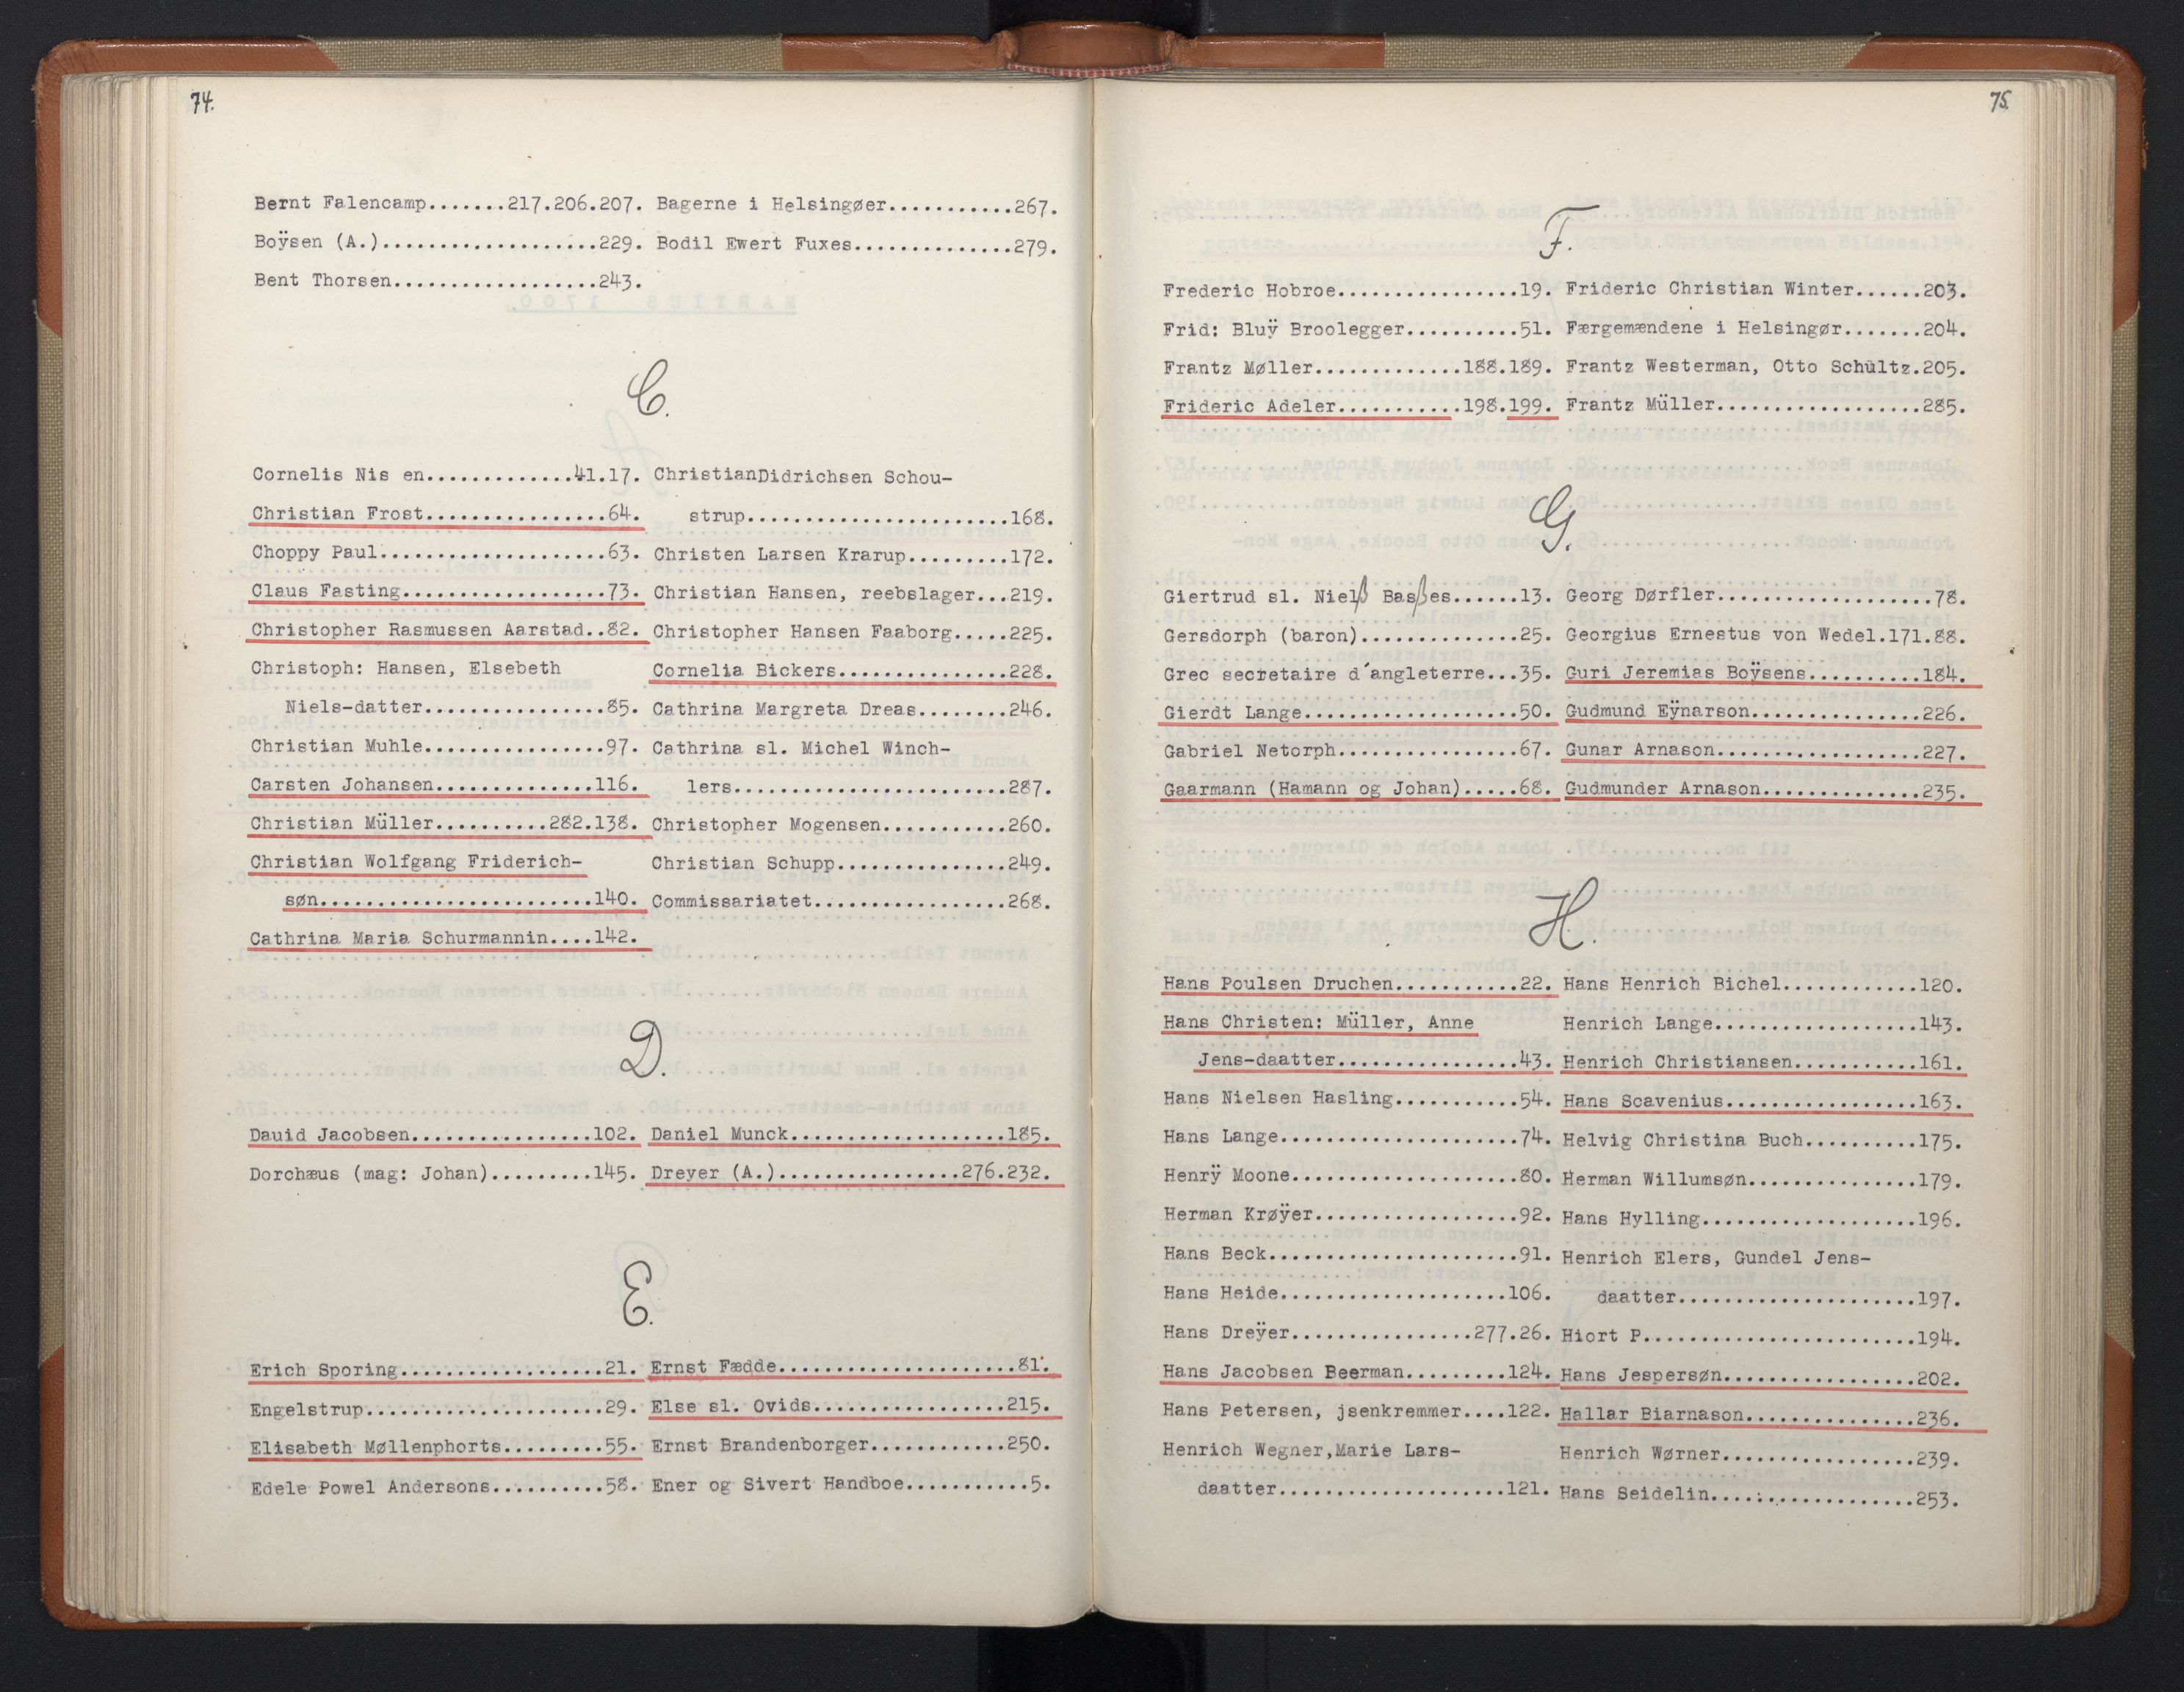 74.
Bernt Falencamp.......217.206.207.
Boÿsen (A.)...................229.
Bent Thorsen..................243.
Bagerne i Helsingøer...........267.
Bodil Ewert Fuxes..............279.
C.
Cornelis Nis en.............41.17.
Christian Frost................64.
Choppy Paul....................63.
Claus Fasting..................73.
Christopher Rasmussen Aarstad..82.
Christoph: Hansen, Elsebeth
Niels-datter................85.
Christian Muhle................97.
Carsten Johansen..............116.
Christian Müller..........282.138.
Christian Wolfgang Friderich-
søn........................140.
Cathrina Maria Schurmannin....142.
ChristianDidrichsen Schou-
strup.......................168.
Christen Larsen Krarup.........172.
Christian Hansen, reebslager...219.
Christopher Hansen Faaborg.....225.
Cornelia Bickers...............228.
Cathrina Margreta Dreas........246.
Cathrina sl. Michel Winch-
lers........................287.
Christopher Mogensen...........260.
Christian Schupp...............249.
Commissariatet.................268.
D.
Dauid Jacobsen................102.
Dorchæus (mag: Johan).........145.
Daniel Munck...................185.
Dreyer (A.)................276.232.
E.
Erich Sporing..................21.
Engelstrup.....................29.
Elisabeth Møllenphorts.........55.
Edele Powel Andersons..........58.
Ernst Fædde.....................81.
Else sl. Ovids.................215.
Ernst Brandenborger............250.
Ener og Sivert Handboe...........5.
75.
F.
Frederic Hobroe................19.
Frid: Bluÿ Broolegger..........51.
Frantz Møller.............188.189.
Frideric Adeler...........198.199.
Frideric Christian Winter......203.
Færgemændene i Helsingør.......204.
Frantz Westerman, Otto Schültz.205.
Frantz Müller..................285.
G.
Giertrud sl. Nielß Basßes......13.
Gersdorph (baron)..............25.
Grec secretaire d´angleterre...35.
Gierdt Lange...................50.
Gabriel Netorph................67.
Gaarmann (Hamann og Johan).....68.
Georg Dørfler...................78.
Georgius Ernestus von Wedel.171.88.
Guri Jeremias Boÿsens..........184.
Gudmund Eÿnarson...............226.
Gunar Arnason..................227.
Gudmunder Arnason..............235.
H.
Hans Poulsen Druchen...........22.
Hans Christen: Müller, Anne
Jens-daatter................43.
Hans Nielsen Hasling...........54.
Hans Lange.....................74.
Henrÿ Moone....................80.
Herman Krøÿer..................92.
Hans Beck......................91.
Hans Heide....................106.
Hans Dreÿer................277.26.
Hans Jacobsen Beerman.........124.
Hans Petersen, jsenkremmer....122.
Henrich Wegner,Marie Lars-
daatter....................121.
Hans Henrich Bichel............120.
Henrich Lange..................143.
Henrich Christiansen...........161.
Hans Scavenius.................163.
Helvig Christina Buch..........175.
Herman Willumsøn...............179.
Hans Hylling...................196.
Henrich Elers, Gundel Jens-
daatter.....................197.
Hiort P........................194.
Hans Jespersøn.................202.
Hallar Biarnason...............236.
Henrich Wørner.................239.
Hans Seidelin..................253.